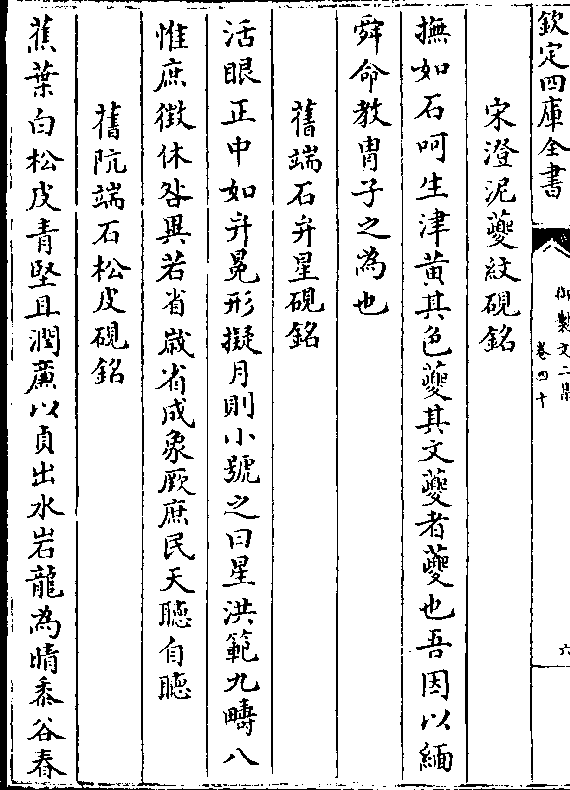 欽定四庫全書
御製文二集
卷四十
六
宋澄泥夔紋硯銘
撫如石呵生津黃其色夔其文夔者夔也吾因以緬
舜命教胄子之為也
舊端石弁星硯銘
活眼正中如弁冕形擬月則小號之曰星洪範九疇八
惟庶徵休咎異若省嵗省成象厥庶民天聽自聽
舊阬端石松皮硯銘
蕉葉白松皮青堅且潤廉以貞出水岩龍為晴黍谷春